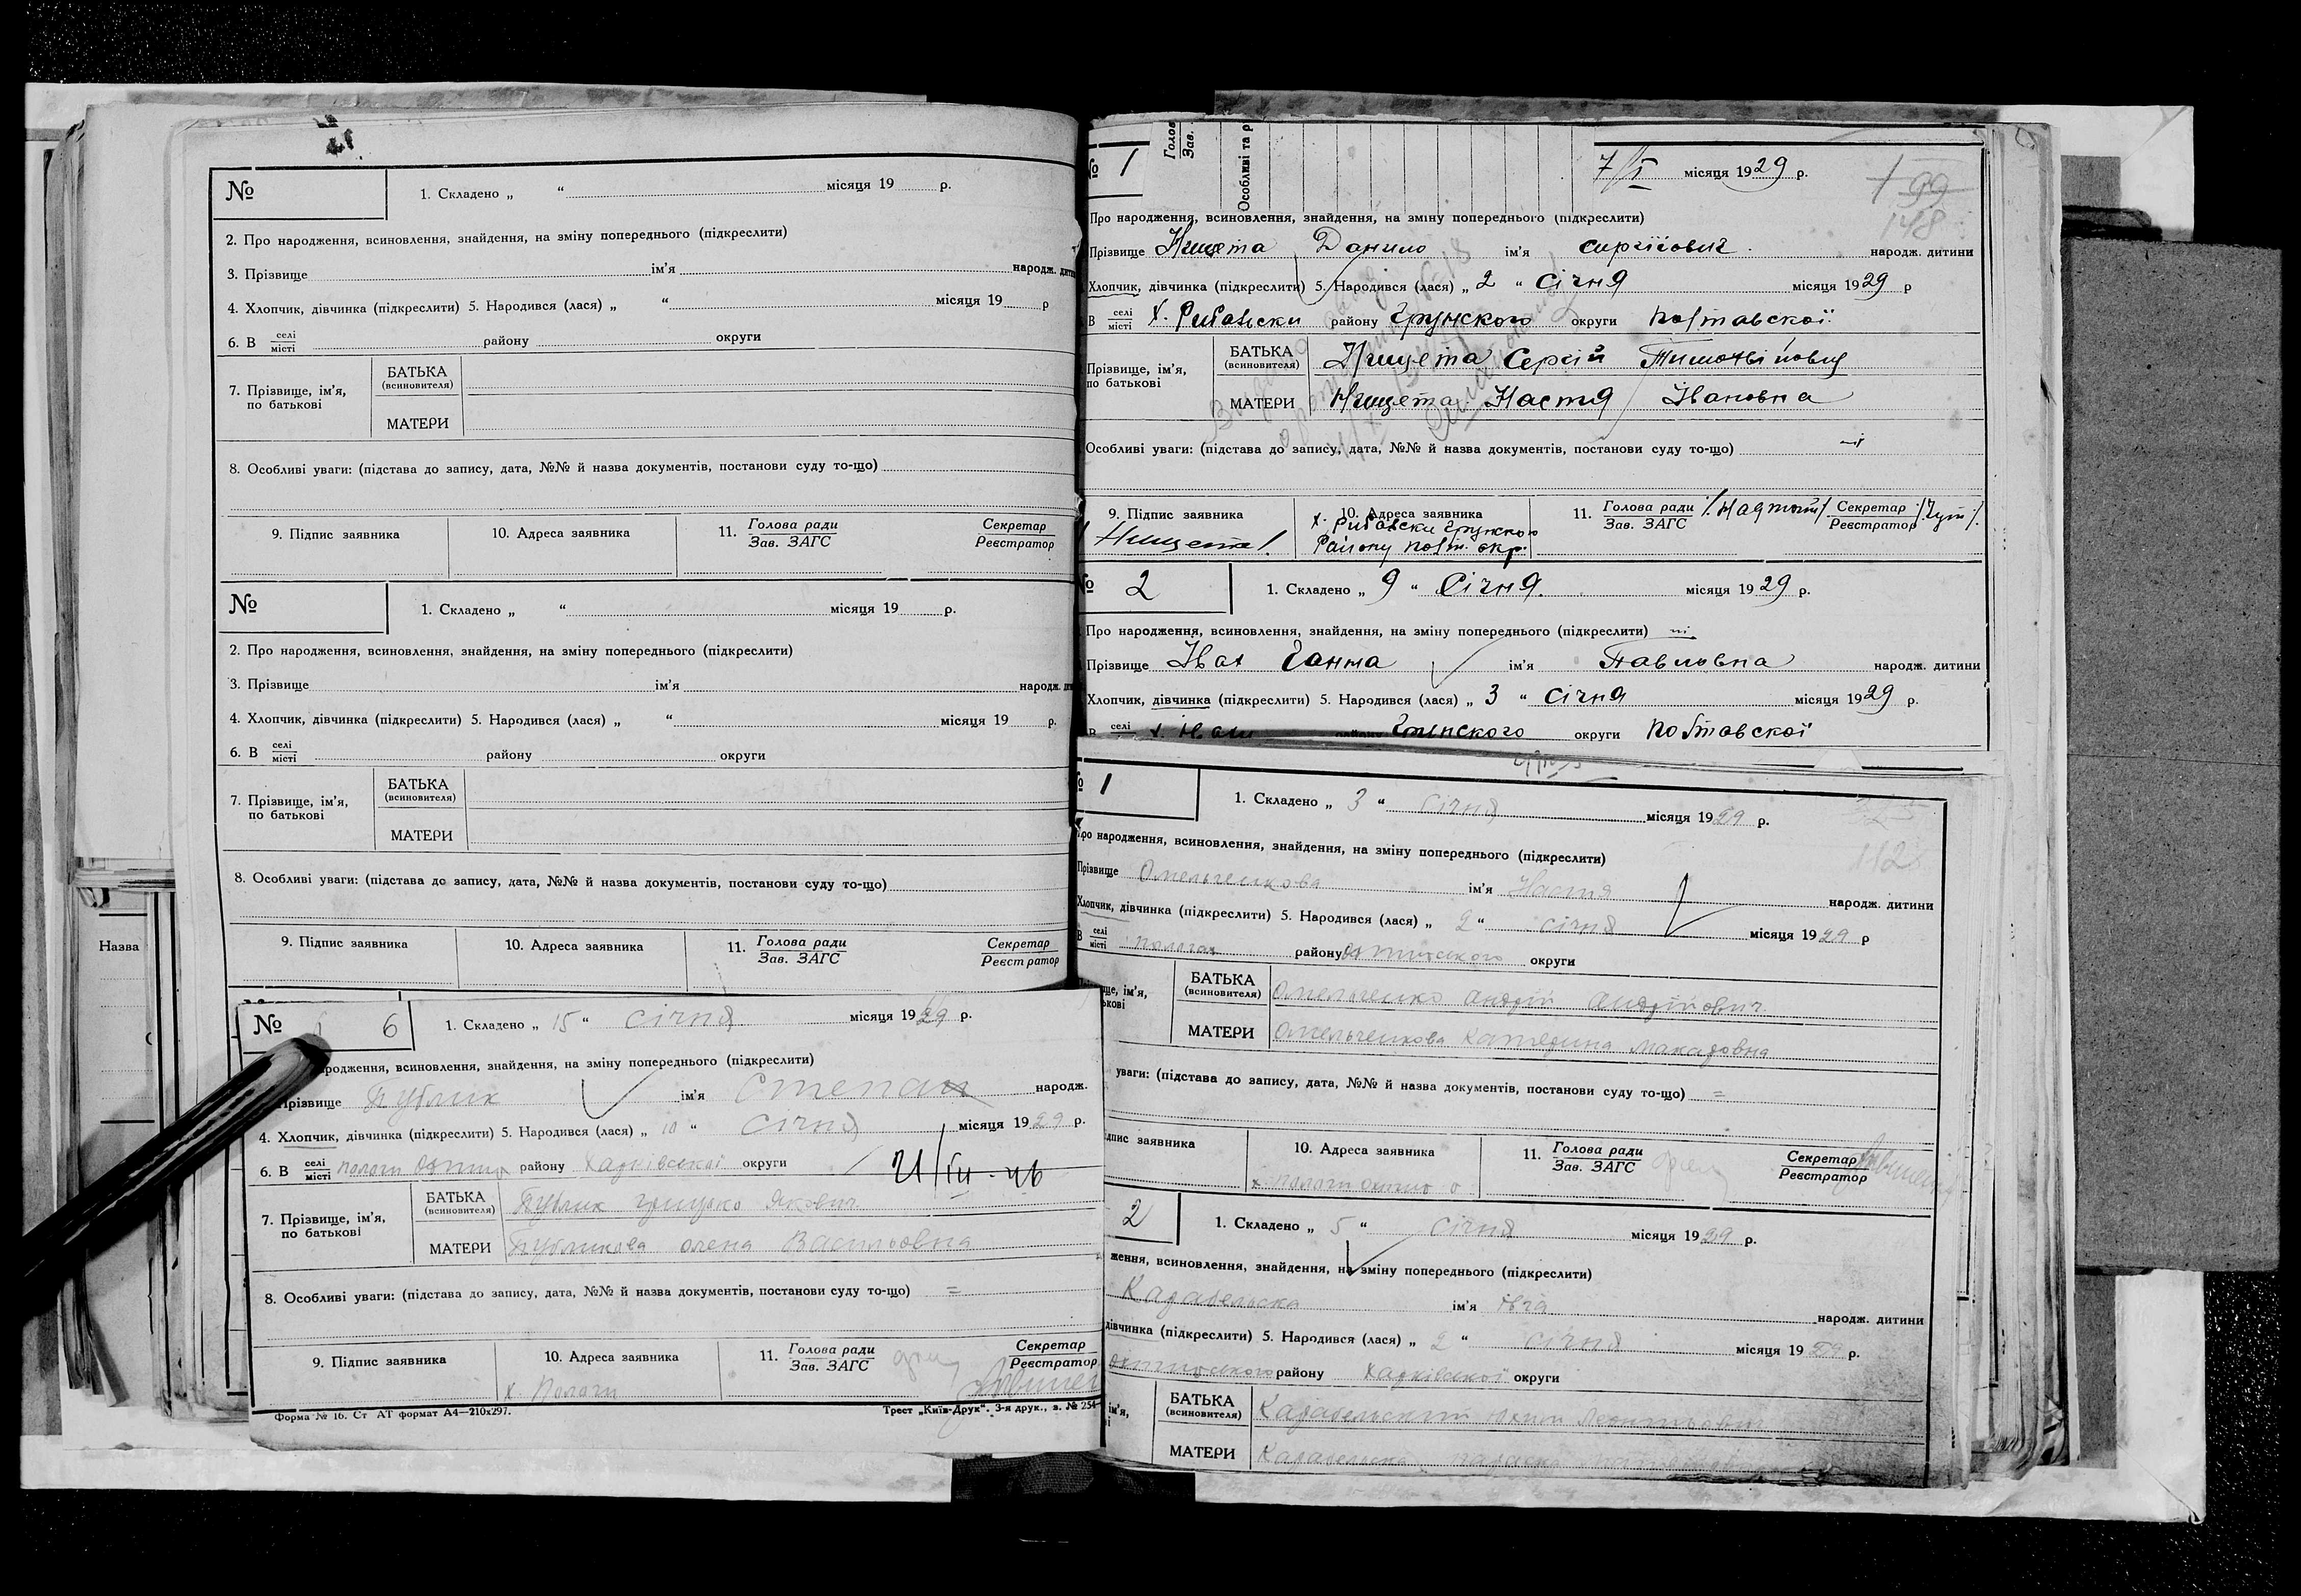 №
1. Складено „ “ місяця 19 р.
2. Про народження, всиновлення, знайдення, на зміну попереднього (підкреслити)
3. Прізвище ім'я народж.
4. Хлопчик, дівчинка (підкреслити) 5. Народився (лася) „ “ місяця 19 р
6. В селі місті району округи
7. Прізвище, ім'я, по батькові
БАТЬКА (всиновителя)
МАТЕРИ
8. Особливі уваги: (підстава до запису, дата, №№ й назва документів, постанови суду то-що)
9. Підпис заявника 10. Адреса заявника 11. Голова ради Зав. ЗАГС Секретар Реєстратор
№
1. Складено „ “ місяця 19 р.
2. Про народження, всиновлення, знайдення, на зміну попереднього (підкреслити)
3. Прізвище ім'я народж.
4. Хлопчик, дівчинка (підкреслити) 5. Народився (лася) „ “ місяця 19 р.
6. В селі місті району округи
7. Прізвище, ім'я, по батькові
БАТЬКА (всиновителя)
МАТЕРИ
8. Особливі уваги: (підстава до запису, дата, №№ й назва документів, постанови суду то-що)
9. Підпис заявника 10. Адреса заявника 11. Голова ради Зав. ЗАГС Секретар Реєстратор
Назва
№ 6
1. Складено „ 15 “ січня місяця 1929 р.
родження, всиновлення, знайдення, на зміну попереднього (підкреслити)
Прізвище Публик ім'я Степан народж.
4. Хлопчик, дівчинка (підкреслити) 5. Народився (лася) „ 10 “ січня місяця 1929 р.
6. В селі місті Пологи району Харківської округи
7. Прізвище, ім'я, по батькові
БАТЬКА (всиновителя) Публик Грицько Якович
МАТЕРИ Публикова Олена Васильовна
8. Особливі уваги: (підстава до запису, дата, №№ й назва документів, постанови суду то-що) =
9. Підпис заявника 10. Адреса заявника 11. Голова ради Зав. ЗАГС Секретар Реєстратор
х. Пологи
Форма № 16. Ст АТ формат А4—210х297. Трест „Київ-Друк“. 3-я друк., з. № 254
Голов
Зав.
Особливі та р
№ 1
7/I місяця 1929 р.
99
148
Про народження, всиновлення, знайдення, на зміну попереднього (підкреслити)
Прізвище Нищета Данило ім'я Сиргійович народж. дитини
Хлопчик, дівчинка (підкреслити) 5. Народився (лася) „ 2 “ січня місяця 1929 р
В селі місті х. Рибальски району Грунского округи Полтавської
Прізвище, ім'я, по батькові
БАТЬКА (всиновителя) Нищета Сергій Тимофійович
МАТЕРИ Нищета Настя Івановна
Особливі уваги: (підстава до запису, дата, №№ й назва документів, постанови суду то-що)
9. Підпис заявника 10. Адреса заявника 11. Голова ради Зав. ЗАГС Секретар Реєстратор
/Нищета/
х. Рибальски Грунского
Району Полт. окр.
№ 2
1. Складено „ 9 “ Січня. місяця 1929 р.
Про народження, всиновлення, знайдення, на зміну попереднього (підкреслити)
Прізвище Іван Ганна ім'я Павловна народж. дитини
Хлопчик, дівчинка (підкреслити) 5. Народився (лася) „ 3 “ січня місяця 1929 р.
В селі х. району Грунского округи Полтавської
№ 1
1. Складено „ 3 “ січня місяця 1929 р.
112
Про народження, всиновлення, знайдення, на зміну попереднього (підкреслити)
Прізвище Омельченкова ім'я Настя народж. дитини
Хлопчик, дівчинка (підкреслити) 5. Народився (лася) „ 2 “ січня місяця 1929 р
В селі місті Пологах району округи
ще, ім'я,
ькові
БАТЬКА (всиновителя) Омельченко Андрій Андрійович
МАТЕРИ Омельченкова Катерина Макаровна
уваги: (підстава до запису, дата, №№ й назва документів, постанови суду то-що) =
дпис заявника 10. Адреса заявника 11. Голова ради Зав. ЗАГС Секретар Реєстратор
х Пологи
2
1. Складено „ 5 “ січня місяця 1929 р.
ження, всиновлення, знайдення, на зміну попереднього (підкреслити)
Карабельска ім'я Івга народж. дитини
дівчинка (підкреслити) 5. Народився (лася) „ 2 “ січня місяця 1929 р.
району Харківської округи
ім'я,
БАТЬКА (всиновителя) Карабельский
МАТЕРИ Карабельска